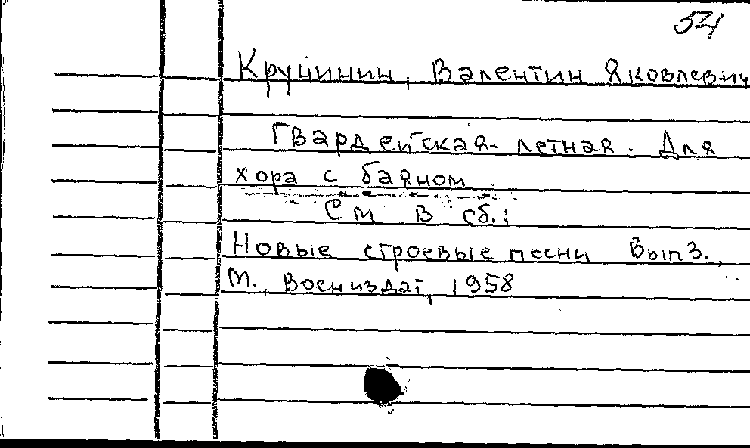 54
Кручинин, Валентин Яковлевич
Гвардейская-летная. Для
хора с баяном
См в сб.:
Новые строевые песни Вып3.,
М., Воениздат, 1958